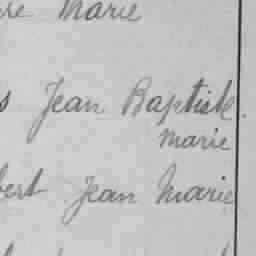 Marie
Jean Baptiste
Marie
bert Jean Marie